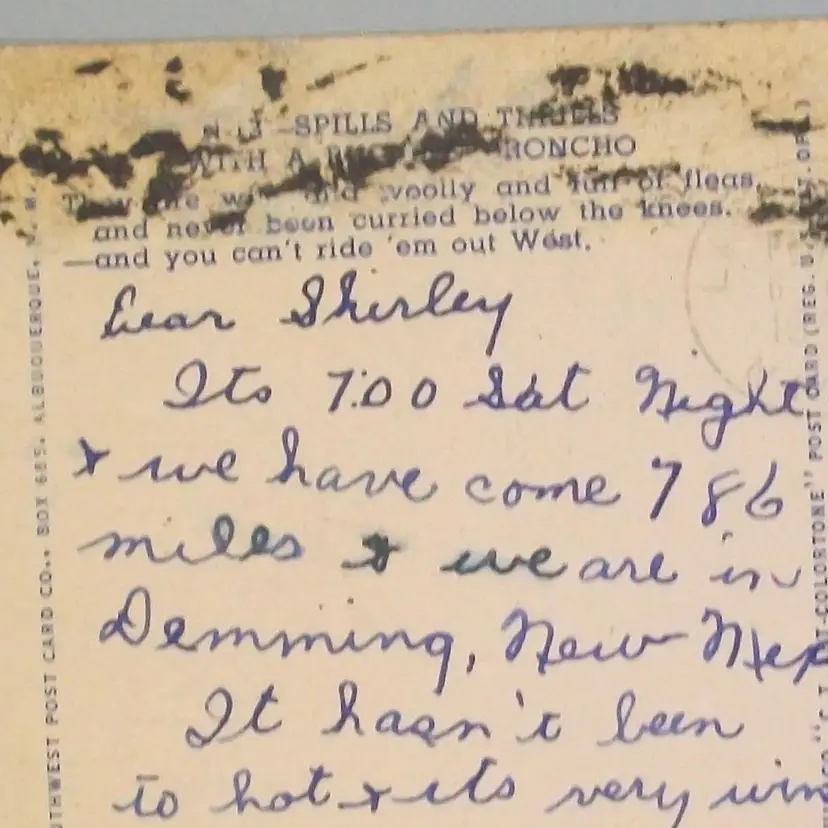 SPILLS AND THRILLS
WITH A BRONCHO
They are wild and woolly and full of fleas,
and never been curried below the knees.
—and you can't ride 'em out West.
Dear Shirley
Its 7:00 Sat Night
& we have come 786
miles & we are in
Demming, New Mex
It hasn't been
to hot & its very win
SOUTHWEST POST CARD CO., BOX 685, ALBUQUERQUE, N. M.
"C.T. ART-COLORTONE" POST CARD (REG. U.S. PAT. OFF.)